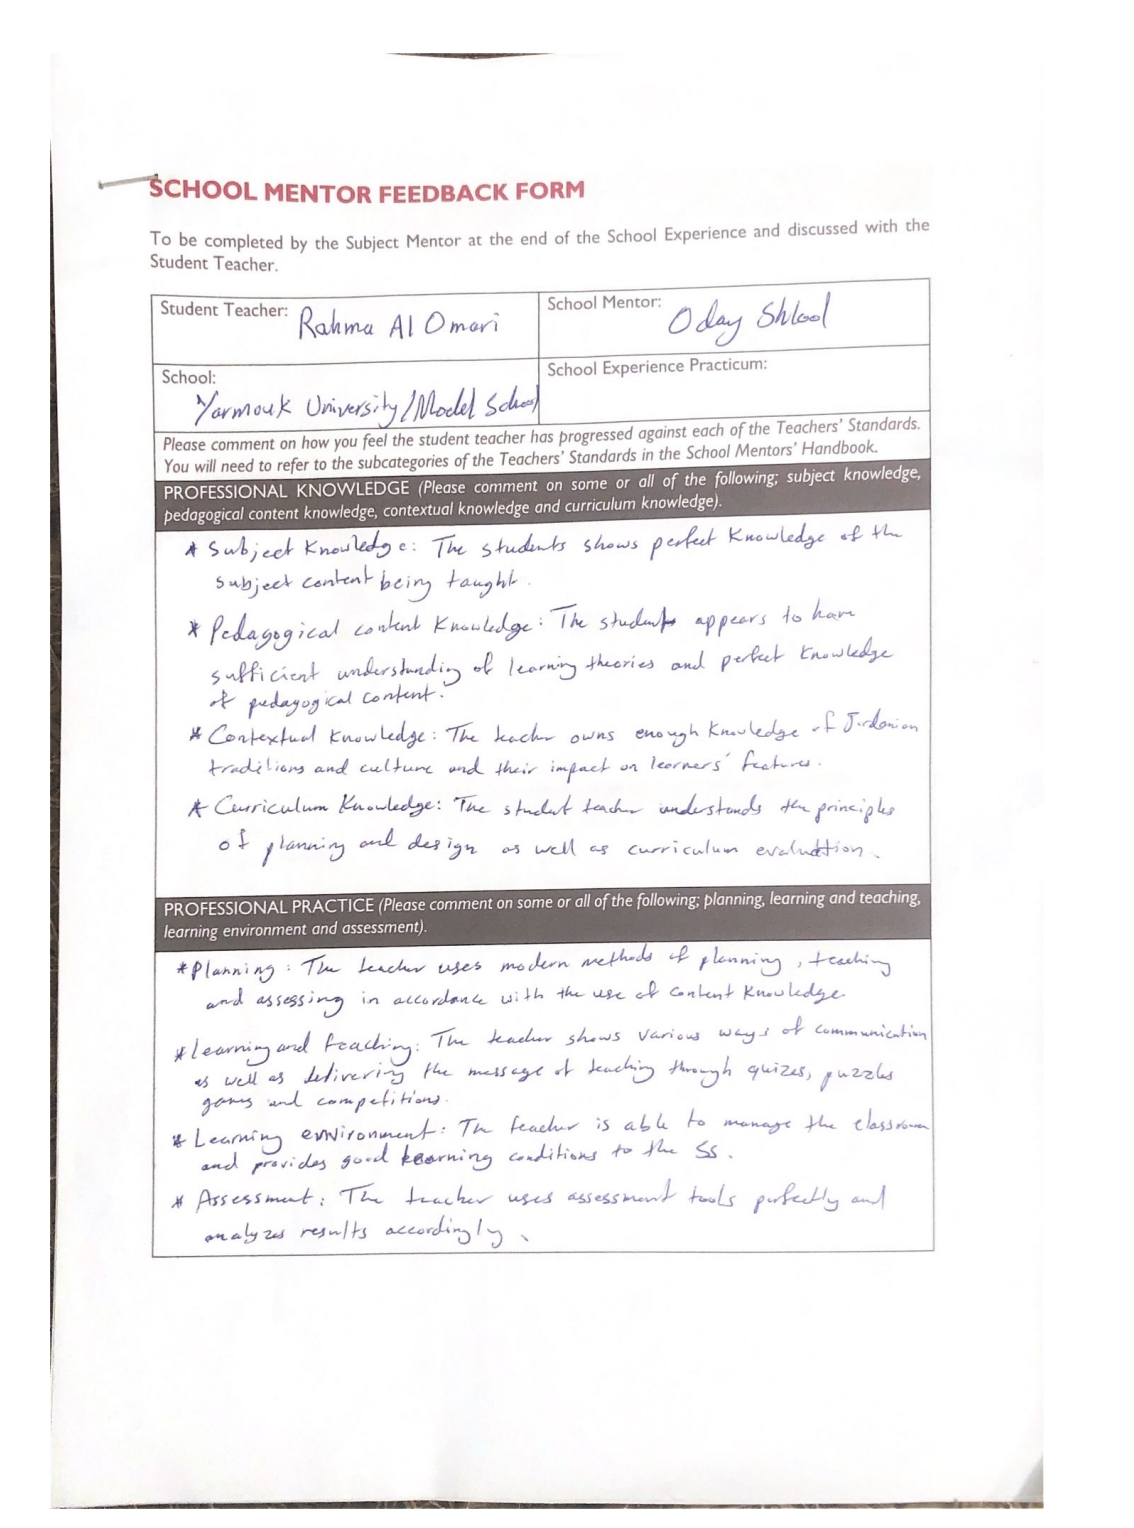 SCHOOL MENTOR FEEDBACK FORM
To be completed by the Subject Mentor at the end of the School Experience and discussed with the
Student Teacher.
Student Teacher: Rahma Al Omari
School Mentor: Oday Shlool
School:
Yarmouk University/Model School
School Experience Practicum:
Please comment on how you feel the student teacher has progressed against each of the Teachers' Standards.
You will need to refer to the subcategories of the Teachers' Standards in the School Mentors' Handbook.
PROFESSIONAL KNOWLEDGE (Please comment on some or all of the following; subject knowledge,
pedagogical content knowledge, contextual knowledge and curriculum knowledge).
* Subject Knowledge: The students shows perfect Knowledge of the
subject content being taught.
* Pedagogical content Knowledge: The student appears to have
sufficient understanding of learning theories and perfect Knowledge
of pedagogical content.
* Contextual Knowledge: The teacher owns enough Knowledge of Jordanian
traditions and culture and their impact on learners' features.
* Curriculum Knowledge: The student teacher understands the principles
of planning and design as well as curriculum evaluation.
PROFESSIONAL PRACTICE (Please comment on some or all of the following; planning, learning and teaching,
learning environment and assessment).
* Planning: The teacher uses modern methods of planning, teaching
and assessing in accordance with the use of Content Knowledge
* Learning and teaching: The teacher shows various ways of communication
as well as delivering the message of teaching through quizes, puzzles
games and competitions.
* Learning environment: The teacher is able to manage the classroom
and provides good learning conditions to the Ss.
* Assessment: The teacher uses assessment tools perfectly and
analyzes results accordingly.